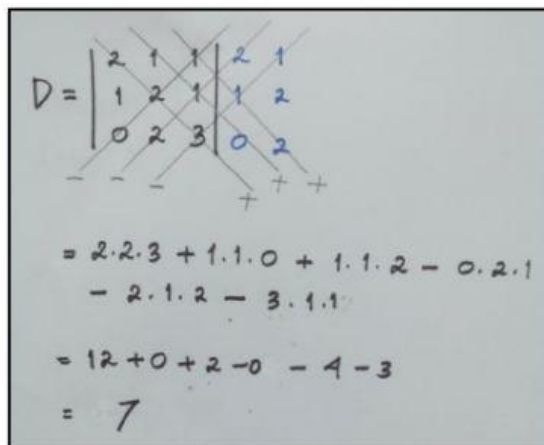 2 1 1 2 1
D = 1 2 1 1 2
0 2 3 0 2
- - - + + +
= 2.2.3 + 1.1.0 + 1.1.2 - 0.2.1
- 2.1.2 - 3.1.1
= 12 +0 + 2 -0 - 4 - 3
= 7